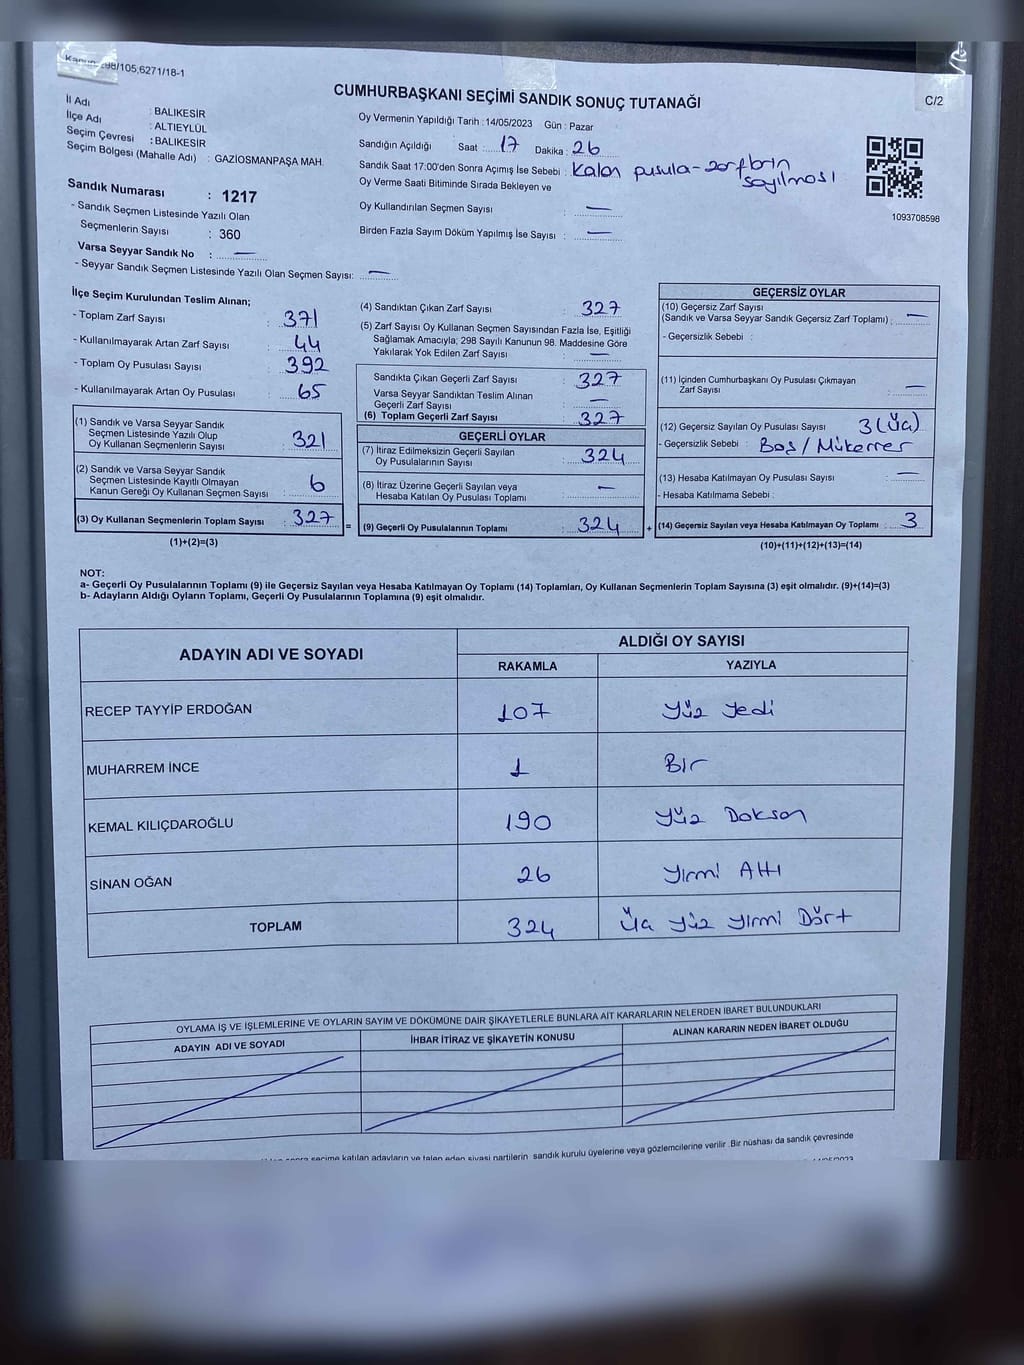 Kanun 298/105;6271/18-1
CUMHURBAŞKANI SEÇİMİ SANDIK SONUÇ TUTANAĞI
C/2
İl Adı : BALIKESİR
İlçe Adı : ALTIEYLÜL
Seçim Çevresi : BALIKESİR
Seçim Bölgesi (Mahalle Adı) : GAZİOSMANPAŞA MAH.
Sandık Numarası : 1217
- Sandık Seçmen Listesinde Yazılı Olan
Seçmenlerin Sayısı : 360
Varsa Seyyar Sandık No : —
- Seyyar Sandık Seçmen Listesinde Yazılı Olan Seçmen Sayısı: —
Oy Vermenin Yapıldığı Tarih : 14/05/2023 Gün : Pazar
Sandığın Açıldığı Saat : 17 Dakika : 26
Sandık Saat 17:00'den Sonra Açımış İse Sebebi : Kalan pusula-zarfların
sayılması
Oy Verme Saati Bitiminde Sırada Bekleyen ve
Oy Kullandırılan Seçmen Sayısı : —
Birden Fazla Sayım Döküm Yapılmış İse Sayısı : —
1093708598
İlçe Seçim Kurulundan Teslim Alınan;
- Toplam Zarf Sayısı : 371
- Kullanılmayarak Artan Zarf Sayısı : 44
- Toplam Oy Pusulası Sayısı : 392
- Kullanılmayarak Artan Oy Pusulası : 65
(1) Sandık ve Varsa Seyyar Sandık
Seçmen Listesinde Yazılı Olup
Oy Kullanan Seçmenlerin Sayısı : 321
(2) Sandık ve Varsa Seyyar Sandık
Seçmen Listesinde Kayıtlı Olmayan
Kanun Gereği Oy Kullanan Seçmen Sayısı : 6
(3) Oy Kullanan Seçmenlerin Toplam Sayısı : 327
(1)+(2)=(3)
=
(4) Sandıktan Çıkan Zarf Sayısı : 327
(5) Zarf Sayısı Oy Kullanan Seçmen Sayısından Fazla İse, Eşitliği
Sağlamak Amacıyla; 298 Sayılı Kanunun 98. Maddesine Göre
Yakılarak Yok Edilen Zarf Sayısı : —
Sandıkta Çıkan Geçerli Zarf Sayısı : 327
Varsa Seyyar Sandıktan Teslim Alınan
Geçerli Zarf Sayısı : —
(6) Toplam Geçerli Zarf Sayısı : 327
GEÇERLİ OYLAR
(7) İtiraz Edilmeksizin Geçerli Sayılan
Oy Pusulalarının Sayısı : 324
(8) İtiraz Üzerine Geçerli Sayılan veya
Hesaba Katılan Oy Pusulası Toplamı : —
(9) Geçerli Oy Pusulalarının Toplamı : 324
+
GEÇERSİZ OYLAR
(10) Geçersiz Zarf Sayısı
(Sandık ve Varsa Seyyar Sandık Geçersiz Zarf Toplamı) : —
- Geçersizlik Sebebi :
(11) İçinden Cumhurbaşkanı Oy Pusulası Çıkmayan
Zarf Sayısı : —
(12) Geçersiz Sayılan Oy Pusulası Sayısı : 3 (Üç)
- Geçersizlik Sebebi : Boş / Mükerrer
(13) Hesaba Katılmayan Oy Pusulası Sayısı : —
- Hesaba Katılmama Sebebi :
(14) Geçersiz Sayılan veya Hesaba Katılmayan Oy Toplamı : 3
(10)+(11)+(12)+(13)=(14)
NOT:
a- Geçerli Oy Pusulalarının Toplamı (9) ile Geçersiz Sayılan veya Hesaba Katılmayan Oy Toplamı (14) Toplamları, Oy Kullanan Seçmenlerin Toplam Sayısına (3) eşit olmalıdır. (9)+(14)=(3)
b- Adayların Aldığı Oyların Toplamı, Geçerli Oy Pusulalarının Toplamına (9) eşit olmalıdır.
ADAYIN ADI VE SOYADI
ALDIĞI OY SAYISI
RAKAMLA YAZIYLA
RECEP TAYYİP ERDOĞAN 107 Yüz Yedi
MUHARREM İNCE 1 Bir
KEMAL KILIÇDAROĞLU 190 Yüz Doksan
SİNAN OĞAN 26 Yirmi Altı
TOPLAM 324 Üç Yüz Yirmi Dört
OYLAMA İŞ VE İŞLEMLERİNE VE OYLARIN SAYIM VE DÖKÜMÜNE DAİR ŞİKAYETLERLE BUNLARA AİT KARARLARIN NELERDEN İBARET BULUNDUKLARI
ADAYIN ADI VE SOYADI İHBAR İTİRAZ VE ŞİKAYETİN KONUSU ALINAN KARARIN NEDEN İBARET OLDUĞU
seçime katılan adayların ve talep eden siyasi partilerin sandık kurulu üyelerine veya gözlemcilerine verilir .Bir nüshası da sandık çevresinde